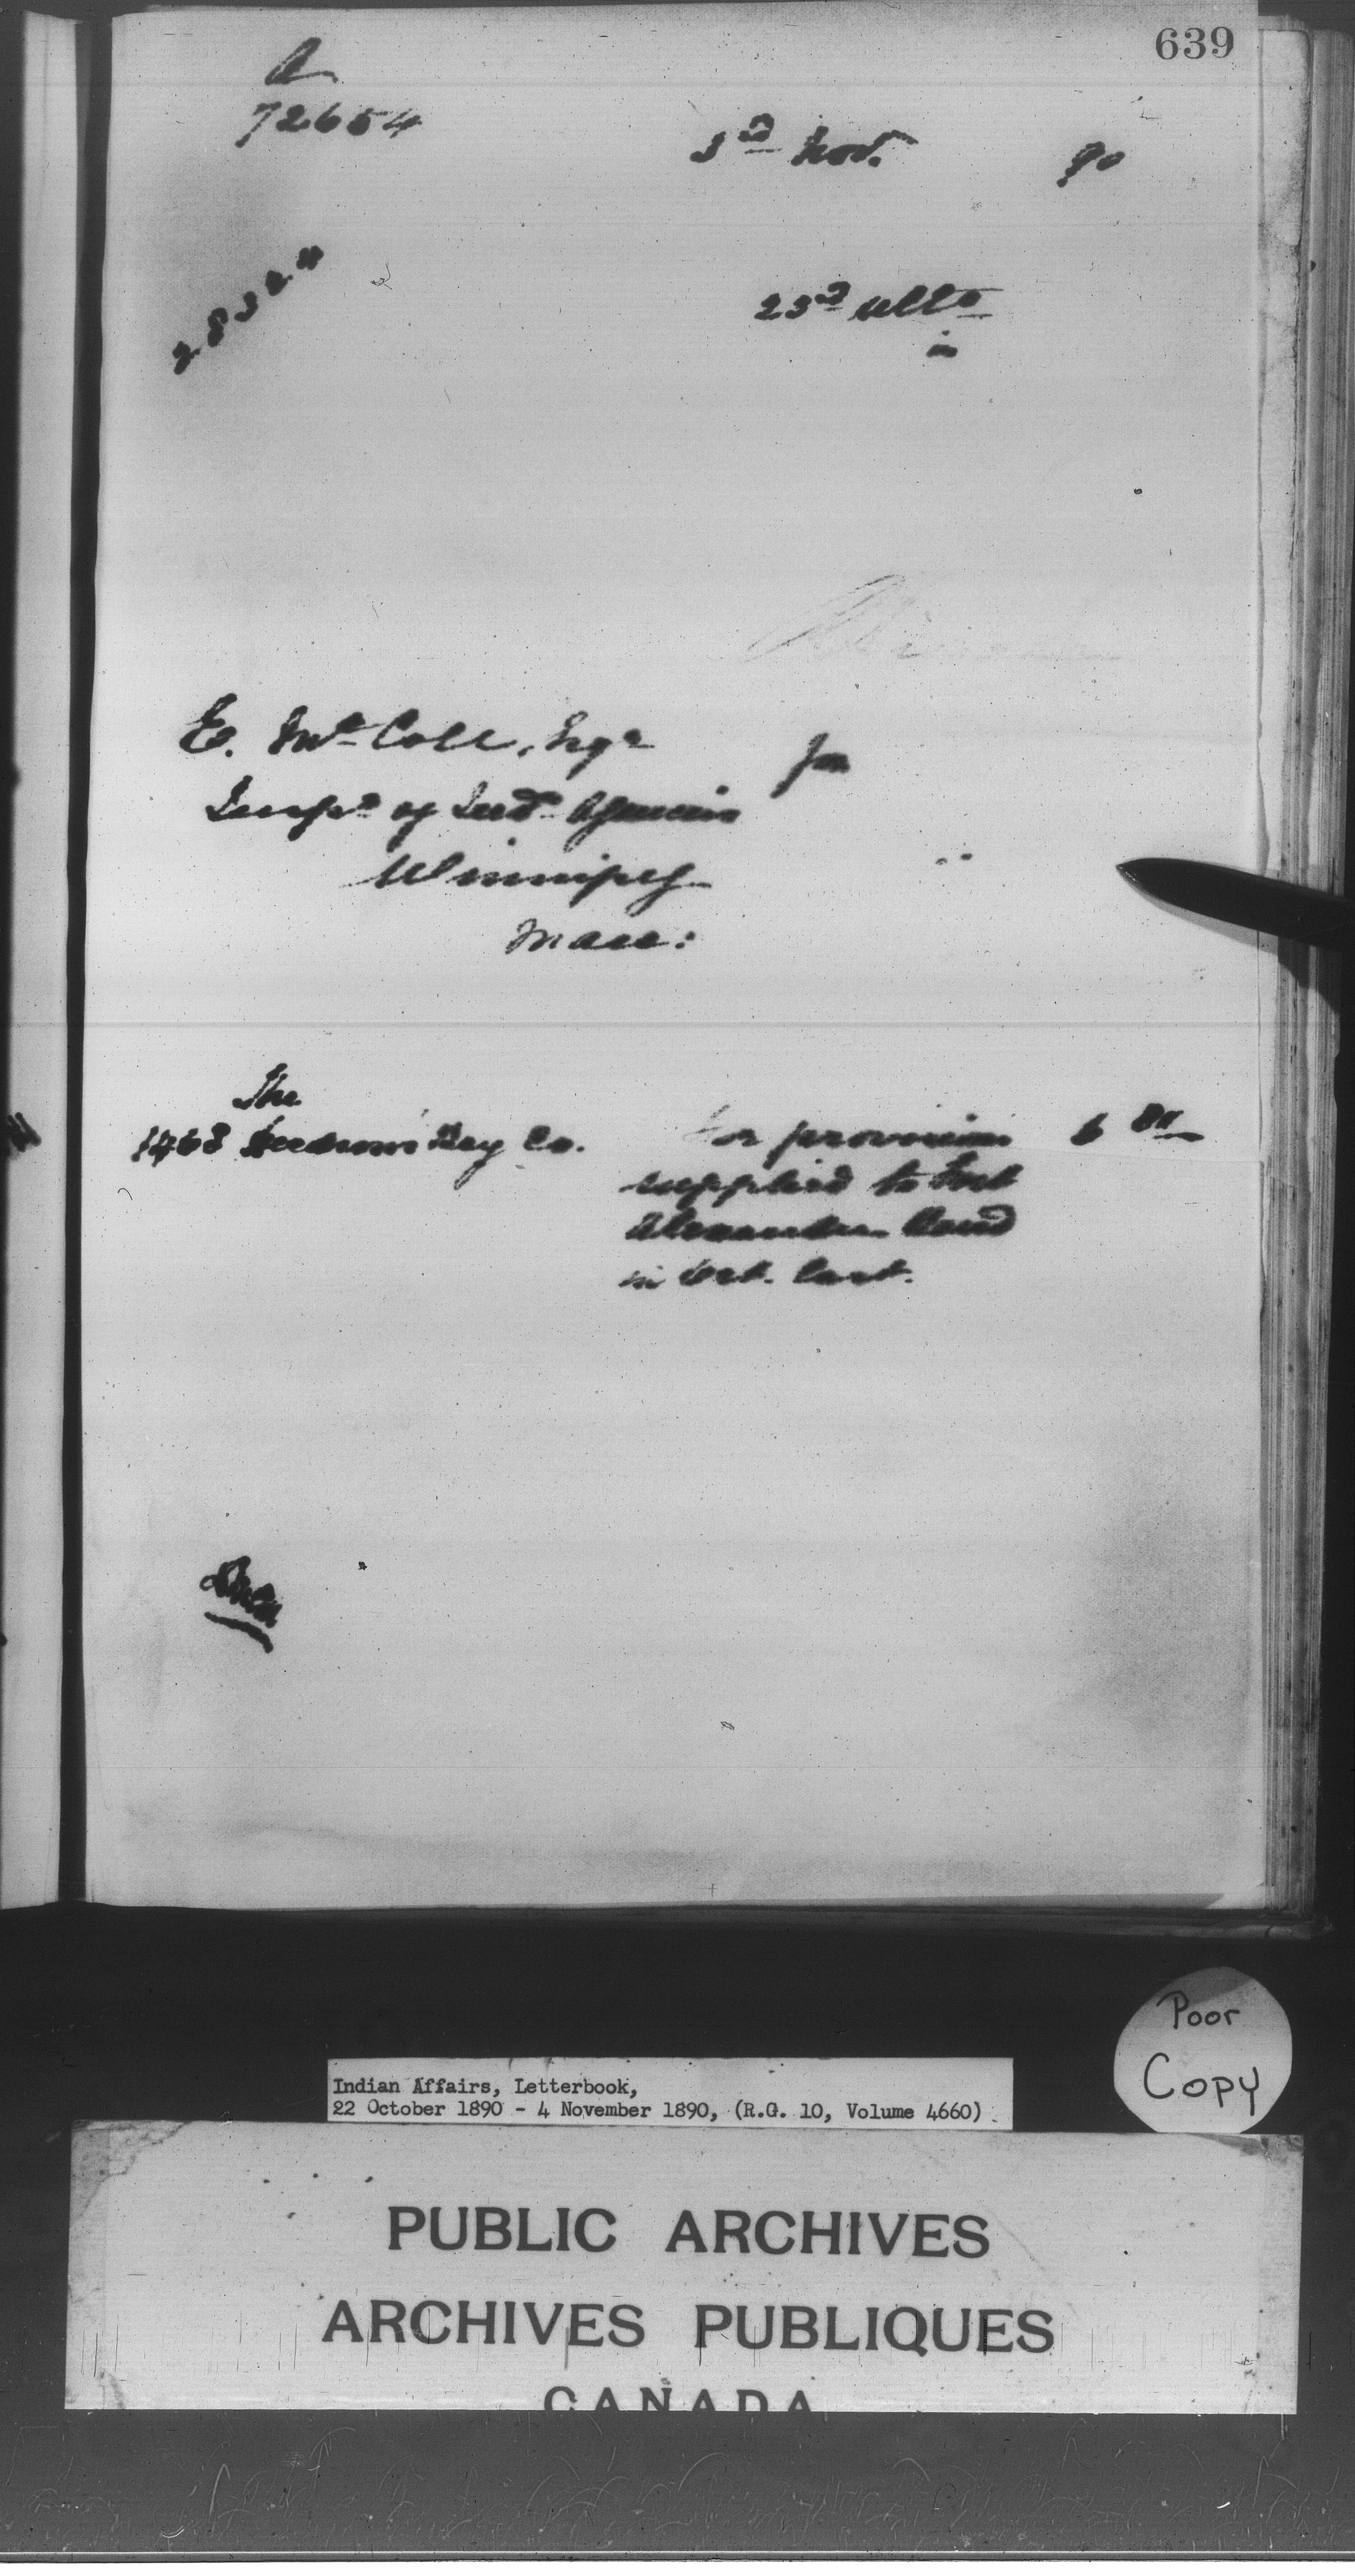 639
A
72654
3rd Nov. 90
28324
23rd Ulto
in
E. McColl, Esqr
for
Inspr of Ind. Agencies
Winnipeg
Man:
The
1468 Hudson's Bay Co. For provisions 6
supplied to Fort
Alexander Band
in Oct. last.
Poor
Copy
Indian Affairs, Letterbook,
22 October 1890 - 4 November 1890, (R.G. 10, Volume 4660)
PUBLIC ARCHIVES
ARCHIVES PUBLIQUES
CANADA